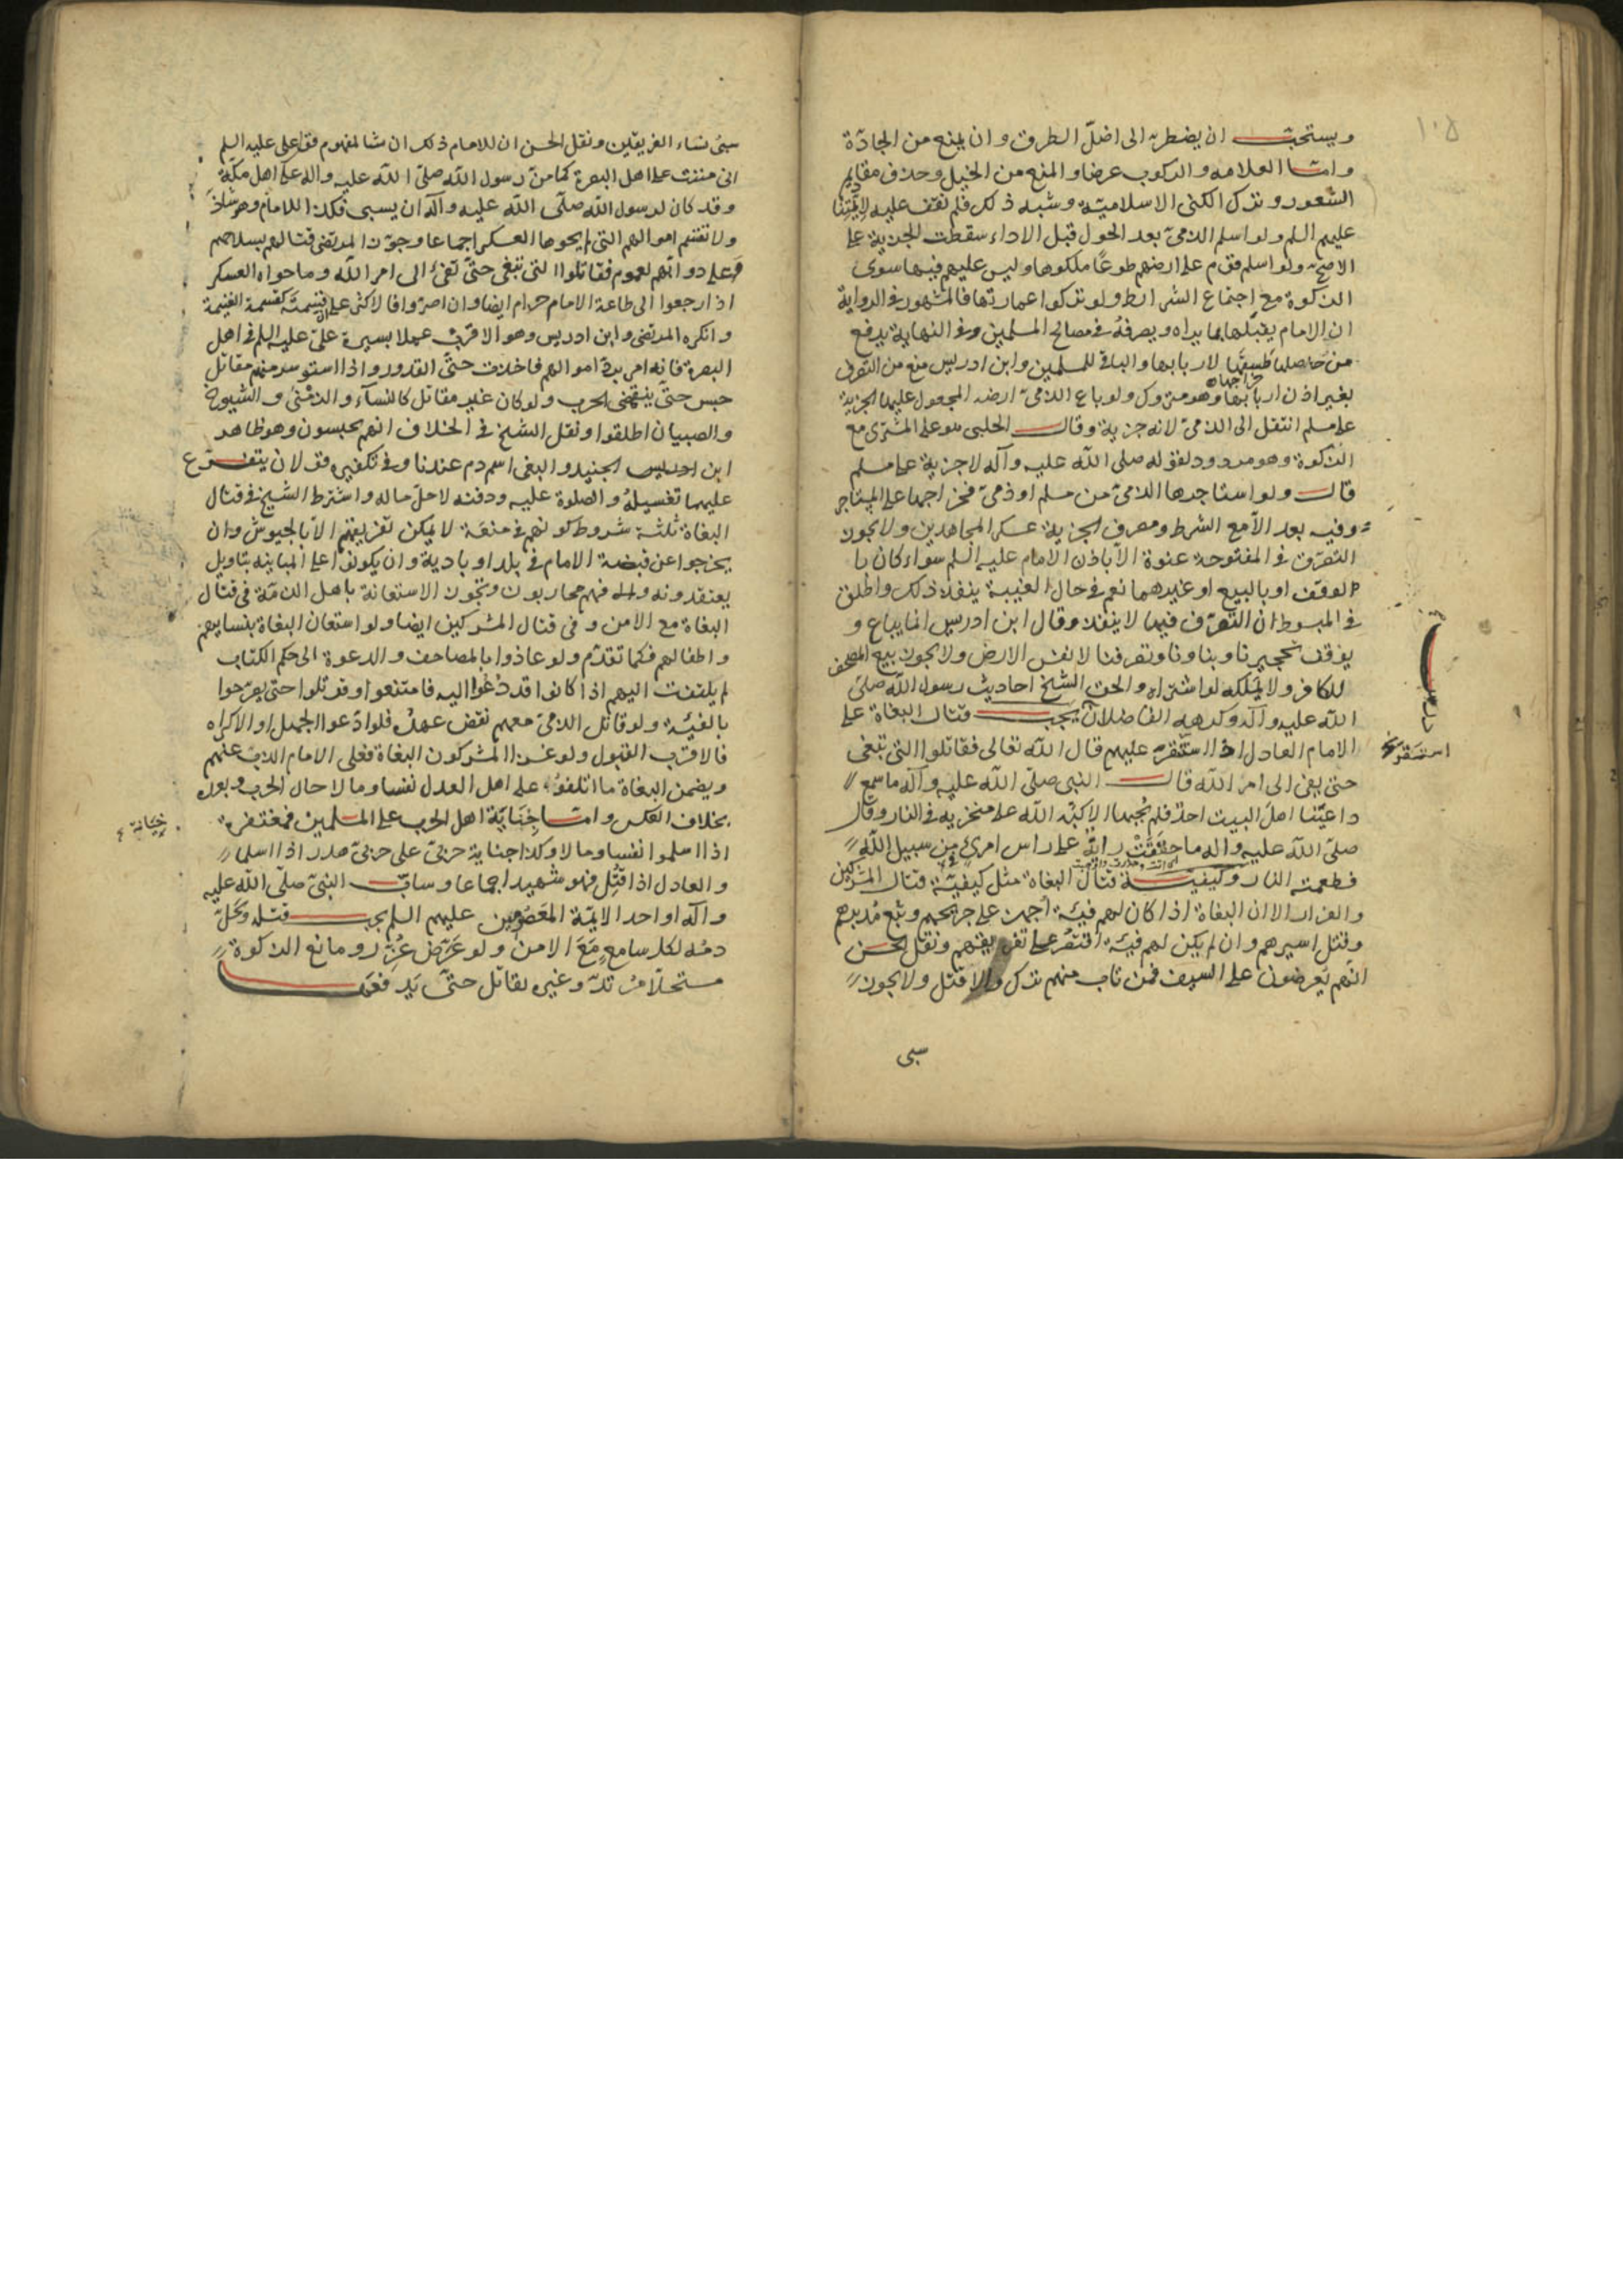 ١٠٥
ويستحب ان يضطره الى اضل الطرق وان يمنع من الجادّة
واما العلامة والركوب عرضا والمنع من الخيل وحذف مقاديم
الشعور وترك الكنى الاسلامية وشبه ذلك فلم نقف عليه لائمتنا
عليهم السلم ولو اسلم الذمى بعد الحول قبل الاداء سقطت الجزية على
الاصح ولو اسلم قوم على ارضهم طوعًا ملكوها وليس عليهم فيها سوى
الذكوة مع اجتماع الشرائط ولو تركوا عمارتها فالمشهور فى الرواية
ان الامام يقبّلها بما يراه ويصرفه فى مصالح المسلمين وفى النهاية يدفع
من حاصلها طسقها لاربابها والباقى للمسلمين وابن ادريس منع من التصرف
بغير اذن اربابها وهو متروك ولو باع الذمى ارضه المجعول عليها الجزية
على مسلم انتقل الى الذمى لانه جزية وقال الحلبى هو على المشترى مع
الذكوة وهو مردود لقوله صلى الله عليه وآله لا جزية على مسلم
قال ولو استاجرها الذمى من مسلم او ذمى فخراجها على المستاجر
وفيه بعد الّا مع الشرط ومصرف الجزية عسكر المجاهدين ولا يجوز
التصرف فى المفتوحة عنوة الّا باذن الامام عليه السلم سواء كان با
لوقف او بالبيع او غيرهما نعم فى حال الغيبة ينفذ ذلك واطلق
فى المبسوط ان التصرف فيها لا ينفذ وقال ابن ادريس انما يباع و
يوقف تحجيرنا وبناؤنا وتصرفنا لا نفس الارض ولا يجوز بيع المصحف
للكافر ولا يملكه لو اشتراه والحق الشيخ احاديث رسول الله صلى
الله عليه وآله وكرهه الفاضلان يجب قتال البغاة على
الامام العادل اذا استنفره عليهم قال الله تعالى فقاتلوا التى تبغى
حتى يفئ الى امر الله قال النبى صلى الله عليه وآله ما سمع
داعيتنا اهل البيت احد فلم يجبها الا كبّه الله على منخريه فى النار وقال
صلى الله عليه واله ما خفقت راية على راس امرئ من سبيل الله
فطعمته النار وكيفية قتال البغاة مثل كيفيّة قتال المشركين
والفرار الا ان البغاة اذا كان لهم فيئة اجهز على جريحهم وتبع مدبرهم
وقتل اسيرهم وان لم يكن لهم فيئة اقتصر على تفريقهم ونقل الحسن
انهم يعرضون على السيف فمن تاب منهم ترك والا قتل ولا يجوز
سبى
درس
استنفره
سبى نساء الفريقين ونقل الحسن ان للامام ذلك ان شاء لمفهوم قول على عليه السلم
انى مننت على اهل البصرة كما منّ رسول الله صلى الله عليه واله على اهل مكة
وقد كان لرسول الله صلى الله عليه وآله ان يسبى فكذا للامام وهو شاذ
ولا تقسم اموالهم التى لم يحوها العسكر اجماعا وجوّز المرتضى قتالهم بسلاحهم
وعلى دوابهم لعموم فقاتلوا التى تبغى حتى تفئ الى امر الله وما حواه العسكر
اذا رجعوا الى طاعة الامام حرام ايضا وان اصروا فالاكثر على قسمته كقسمة الغنيمة
وانكره المرتضى وابن ادريس وهو الاقرب عملا بسيرة على عليه السلم فى اهل
البصرة فانه امر برد اموالهم فاخذت حتى القدور واذا استوسر منهم مقاتل
حبس حتى ينقضى الحرب ولو كان غير مقاتل كالنسآء والزمنى والشيوخ
والصبيان اطلقوا ونقل الشيخ فى الخلاف انهم يحبسون وهو ظاهر
ابن الجنيد والبغى اسم ذم عندنا وفى تكفيره قولان يتفرع
عليهما تغسيله والصلوة عليه ودفنه لا حل ماله واشترط الشيخ فى قتال
البغاة ثلثة شروط كونهم فى منعة لا يمكن تفريقهم الا بالجيوش وان
يخرجوا عن قبضة الامام فى بلد او بادية وان يكونوا على المباينة بتاويل
يعتقدونه والا فهم محاربون ويجوز الاستعانة باهل الذمة فى قتال
البغاة مع الامن وفى قتال المشركين ايضا ولو استعان البغاة بنسايهم
واطفالهم فكما تقدم ولو عاذوا بالمصاحف والدعوة الى حكم الكتاب
لم يلتفت اليهم اذا كانوا قد دعوا اليه فامتنعوا وقوتلوا حتى يصرحوا
بالفيئة ولو قاتل الذمى معهم نقض عهده فلو ادعوا الجهل او الاكراه
فالاقرب القبول ولو غزا المشركون البغاة فعلى الامام الذب عنهم
ويضمن البغاة ما اتلفوه على اهل العدل نفسا ومالا حال الحرب وبعده
بخلاف العكس واما جناية اهل الحرب على المسلمين فمغتفرة
اذا اسلموا نفسا ومالا وكذا جناية حربى على حربى هدر اذا اسلما
والعادل اذا قتل فهو شهيد اجماعا وساب النبى صلى الله عليه
وآله او احد الايمة المعصومين عليهم السلم يجب قتله ويحل
دمه لكل سامع مع الامن ولو عرّض عزر ومانع الذكوة
مستحلّا مرتد وغيره يقاتل حتى يدفعها
جناية